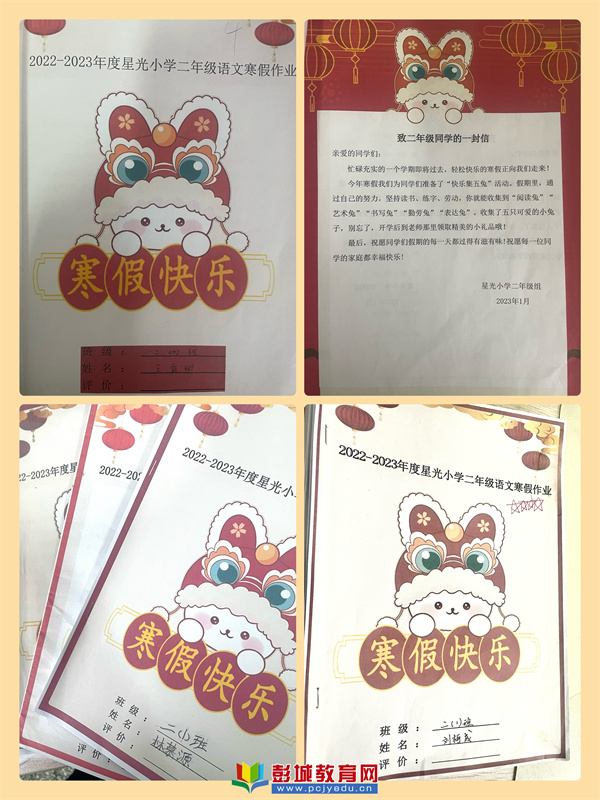 4
2022-2023年度星光小学二年级语文寒假作业
寒假快乐
班级:
姓名:
评价:
致二年级同学的一封信
亲爱的同学们:
忙碌充实的一个学期即将过去,轻松快乐的寒假正向我们走来!
今年寒假我们为同学们准备了“快乐集五兔”活动。假期里,通
过自己的努力,坚持读书、练字、劳动,你就能收集到“阅读兔”“
艺术兔”“书写兔”“勤劳兔”“表达兔”。收集了五只可爱的小兔
子,别忘了,开学后到老师那里领取精美的小礼品哦!
最后,祝愿同学们假期的每一天都过得有滋有味!祝愿每一位同
学的家庭都幸福快乐!
星光小学二年级组
2023年1月
2022-2023年
2022-2023年度星光小学
寒假快乐
班级: 二(1)班
姓名: 林梦源
评价:
2022-2023年度星光小学二年级语文寒假作业
寒假快乐
班级: 二(1)班
姓名:
评价:
彭城教育网
www.pcjyedu.cn